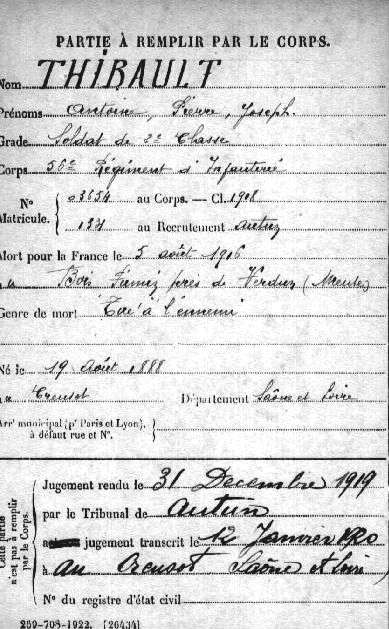 PARTIE À REMPLIR PAR LE CORPS.
Nom THIBAULT
Prénoms Antoine, Pierre, Joseph.
Grade Soldat de 2e Classe
Corps 56e Régiment d'Infanterie
N° Matricule. 03654 au Corps. — Cl. 1908
137 au Recrutement Autun
Mort pour la France le 5 août 1916
à Bois Fumin près de Verdun (Meuse)
Genre de mort Tué à l'ennemi
Né le 19 Août 1888
à Creusot Département Saône et Loire
Arrt municipal (pr Paris et Lyon),
à défaut rue et N°.
Cette partie n'est pas à remplir par le Corps.
Jugement rendu le 31 Decembre 1919
par le Tribunal de Autun
jugement transcrit le 12 Janvier 1920
à au Creusot Saône et Loire
N° du registre d'état civil
259-708-1922. [26434]